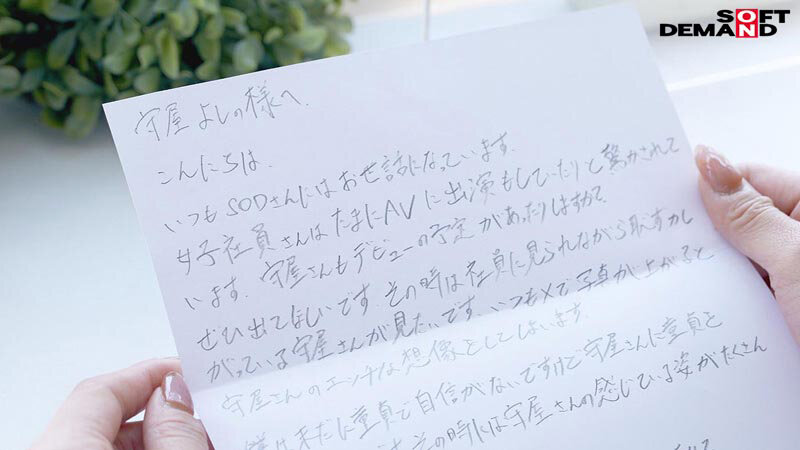 SOFT
DEMAND
守屋よしの様へ.
こんにちは.
いつもSODさんにはお世話になっています.
女子社員さんはたまにAVに出演もしていたりと驚かされて
います. 守屋さんもデビューの予定があったりしますか?
ぜひ出てほしいです. その時は社員に見られながら恥ずかし
がっている守屋さんが見たいです. いつもXで写真が上がると
守屋さんのエッチな想像をしてしまいます.
僕は未だに童貞で自信がないですけど守屋さんに童貞を
その時には守屋さんの感じている姿がたくさん